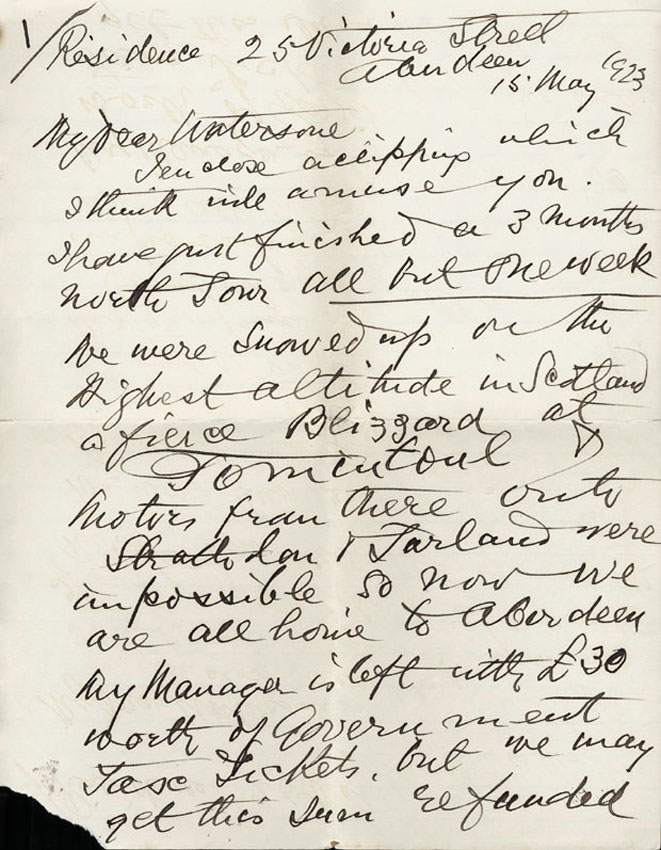 1/ Residence 25 Victoria Street
Aberdeen
15 May 1923
My Dear Watersone
I enclose a clipping which
I think will amuse you.
I have just finished a 3 months
North Tour all but one week
We were snowed up on the
Highest altitude in Scotland
a fierce Blizzard at
Tomintoul
Motors from there onto
Strathdon & Tarland were
impossible so now we
are all home to Aberdeen
My Manager is left with £30
worth of Government
Tax Tickets, but we may
get this sum refunded